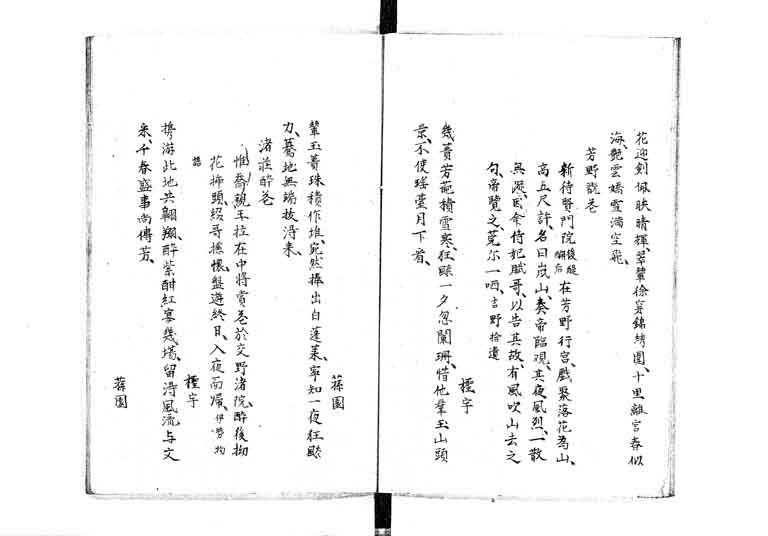 花迎剣佩映晴揮、翠輦徐穿錦綉圍、十里離宮春似
海、艶雲嬌雪満空飛、
芳野
新待賢門院後醍醐后在芳野行宮、戯聚落花為山、
高五尺許、名曰嵐山、奏帝臨観、其夜風烈、一散
無遺、因令侍妃賦哥、以告其故、有風吹山去之
句、帝覧之、莞尓一哂、吉野拾遺
檉宇
幾簣芳葩積雪寒、狂飈一夕忽闌珊、惜他羣玉山頭
景、不使瑶臺月下看、
蓀園
輦玉蕢珠積作堆、宛然捧出白蓬莱、寧知一夜狂飈
力、驀地無端抜得来、
渚荘酔花
惟喬親王拉在中将賞花於交野渚院、酔後拗
花挿頭、綴哥攄懐、盤遊終日、入夜而帰、伊勢物
語
檉宇
携游此地共翺翔、酔紫酣紅幾場、留得風流与文
采、千春盛事尚傳芳、
蓀園